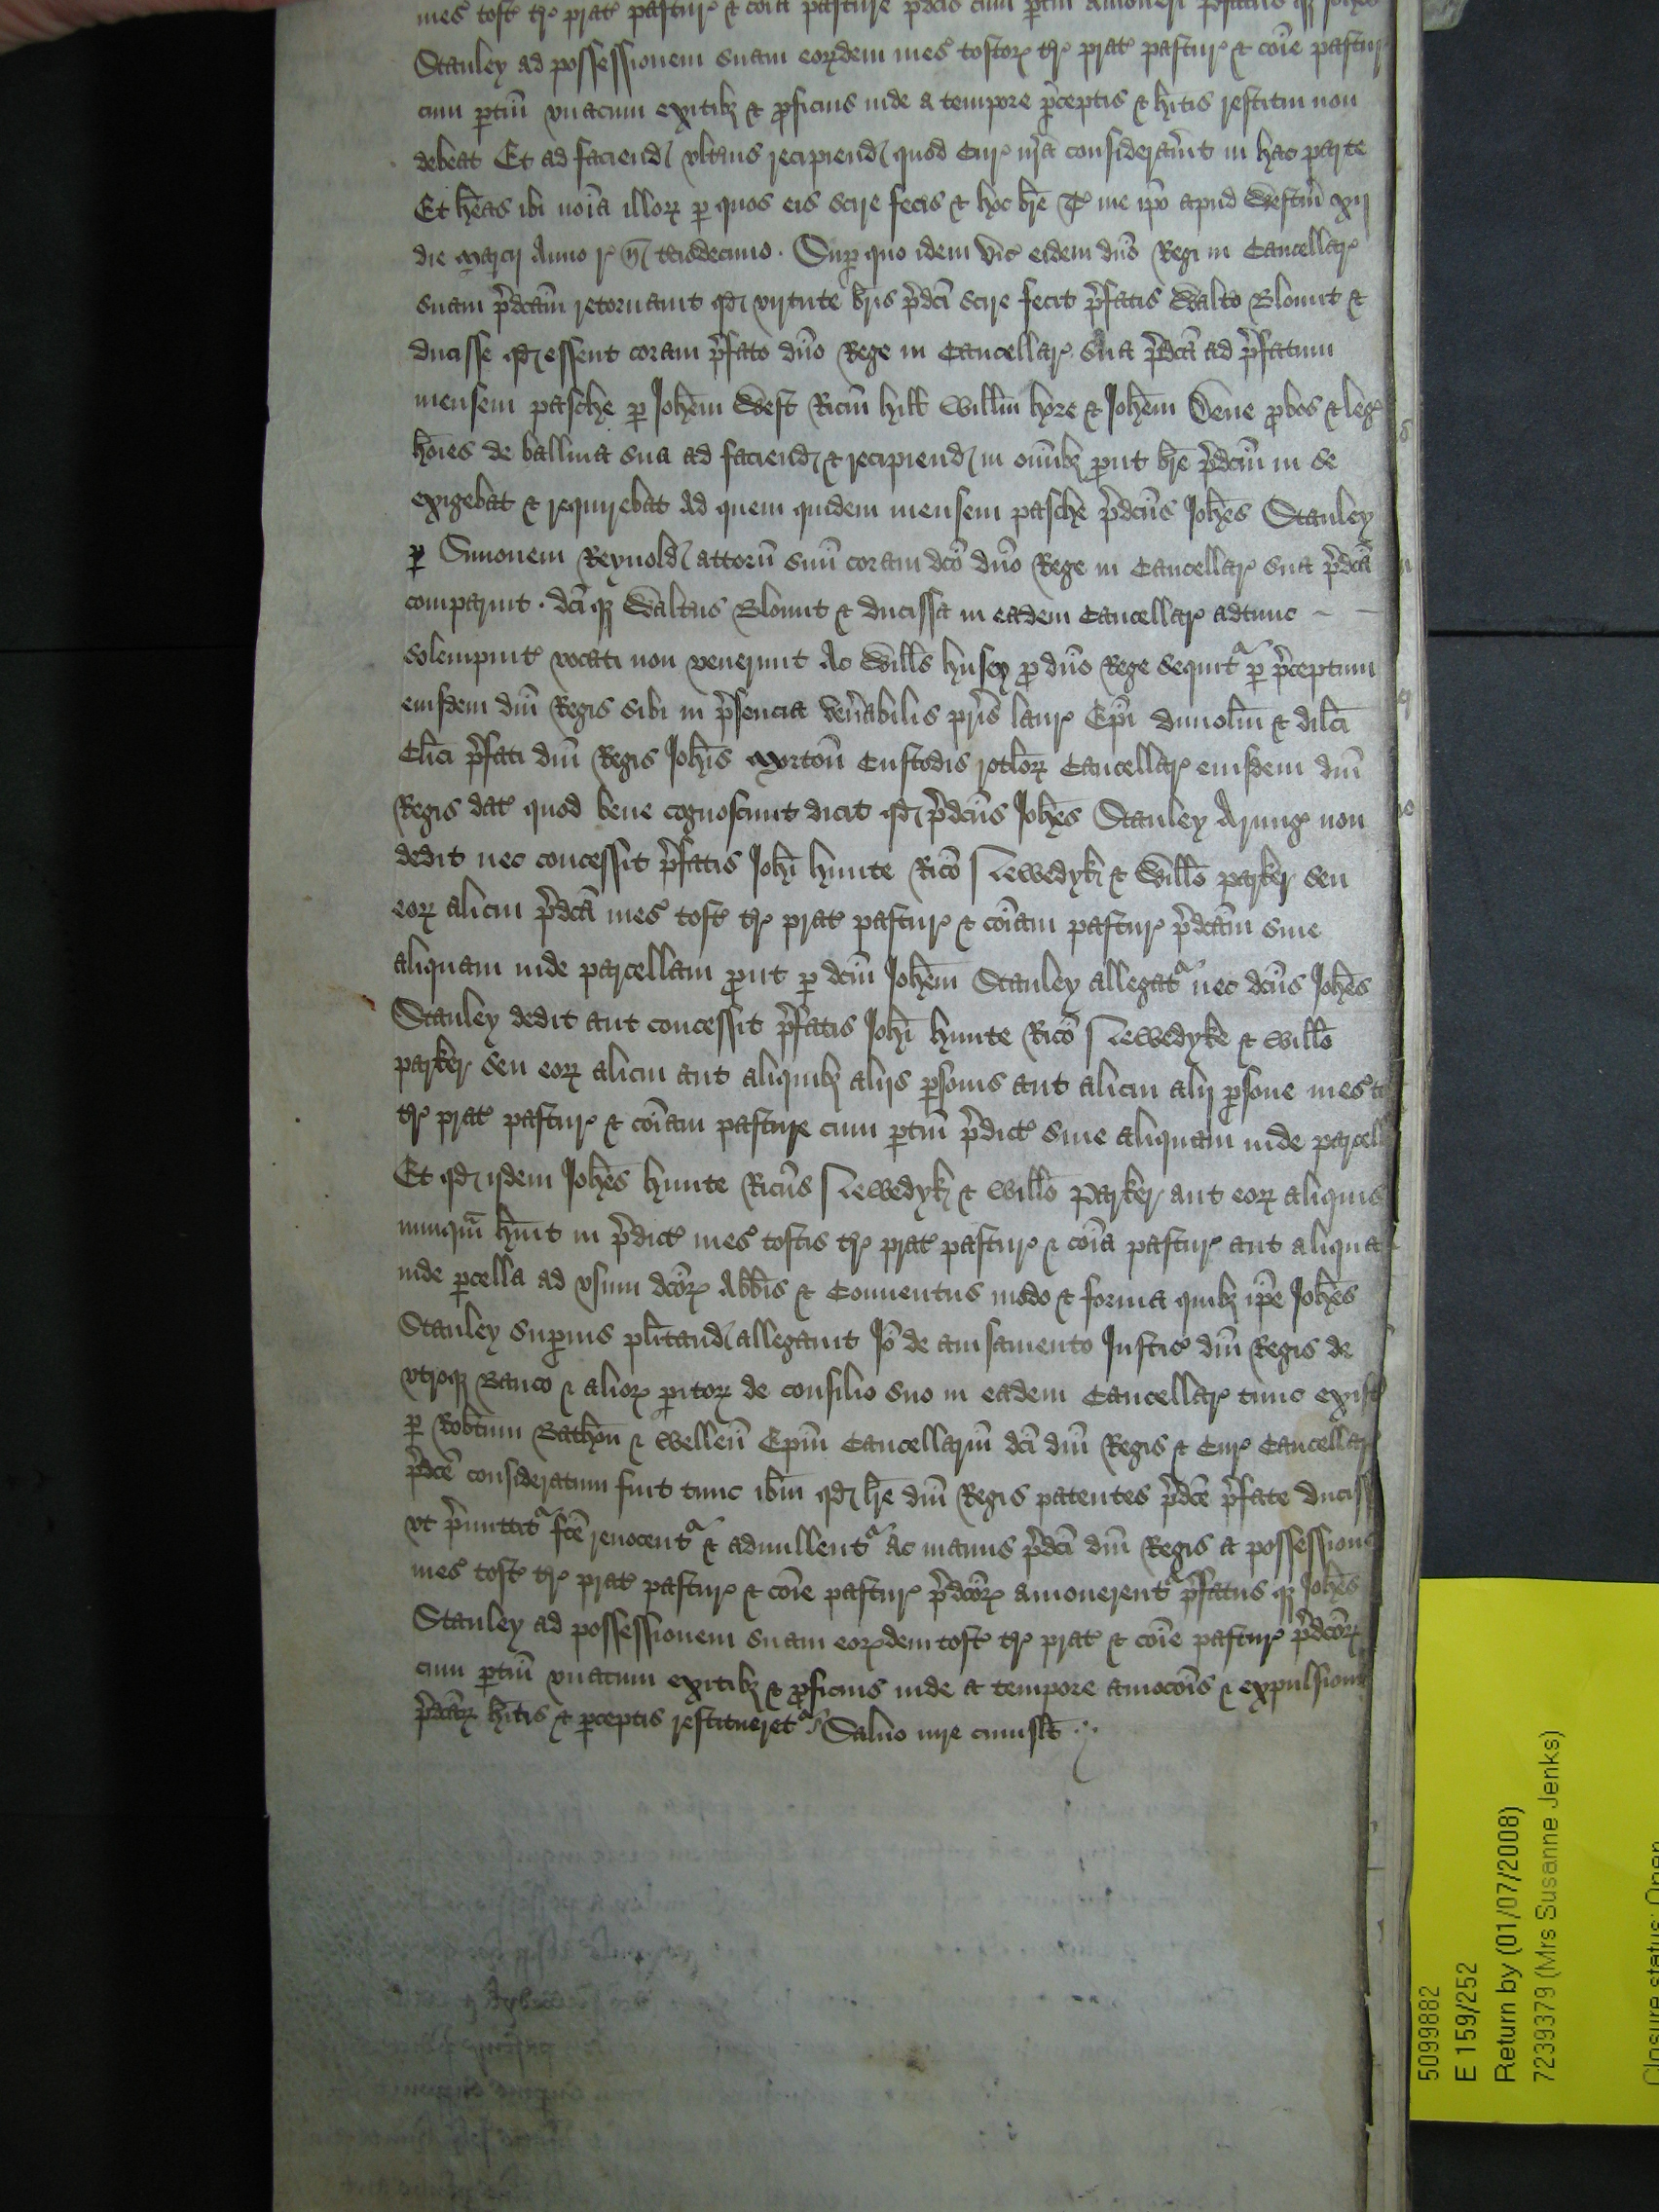 mes' toft' t'r' prat' pastur' & coia pasture pdcis cum ptin amoueri pfatus q Johes
Stanley ad possessionem suam eordem mes' toftor' t'r' prat' pastur' & coie pastur'
cum ptin vnacum exitibz & pficuis inde a tempore pceptis & hitis restitui non
debeat Et ad faciend' vlterius recipiend' quod Cur' nra considerauit in hac parte
Et heas ibi noia illor' p quos eis scire fecis & hoc bre T' me ipo apud Westm xij
die Marcij Anno r' n' terciodecimo . Sup quo idem vic' eidem dno Regi in Cancellar'
suam pdcam retornauit qd' virtute bris pdci scire fecit pfatis Walto Blount &
ducisse qd' essent coram pfato dno Rege in Cancellar' sua pdca ad pfatum
mensem pasche p Johem West Ricm hill Willm hore & Johem Dene pbos & leg'
hoies de balliua sua ad faciend' & recipiend' in omibz put bre pdcm in se
exigebat & requirebat Ad quem quidem mensem pasche pdcus Johes Stanley
p Simonem Reynold' attorn suu coram dco dno Rege in Cancellar' sua pdca
comparuit . dci q Waltus Blount & ducissa in eadem Cancellar' adtunc
solempnit' vocati non venerunt Ac Wills husey p dno Rege sequit' p pceptum
eiusdem dni Regis sibi in psencia ven'abilis pris laur' Epi dunolm & dilci
Clici pfati dni Regis Johis Morton Custodis rotlor' Cancellar' eiusdem dni
Regis dat' quod bene cognoscunt dicit qd' pdcus Johes Stanley Armig' non
dedit nec concessit pfatis Johi hunte Rico Lewedyk' & Willo parker seu
eor' alicui pdca mes' toft' t'r' prat' pastur' & coiam pastur' pdcam siue
aliquam inde parcellam put p dcm Johem Stanley allegat' nec dcus Johes
Stanley dedit aut concessit pfatis Johi hunte Rico Lewedyke & willo
parker seu eor' alicui aut aliquibz alijs psonis aut alicui alij psone mes'
t'r' prat' pastur' & coiam pasture cum ptin pdict' siue aliquam inde parcell
Et qd' ijdem Johes hunte Ricus Lewedyk' & willo Parker aut eor' aliquis
nunqm huit in pdict' mes' toftis t'r' prat' pastur' & coia pastur' aut aliqua
inde pcella ad vsum dcor' Abbis & Conuentus modo & forma quibz ipe Johes
Stanley supius plitand' allegauit Io de auisamento Justic' dni Regis de
vtroq Banco & alior' pitor' de consilio suo in eadem Cancellar' tunc exist'
p Robtum Bathon & Wellen Epm Cancellarm dci dni Regis & Cur' Cancellar'
pdce consideratum fuit tunc ibm qd' lre dni Regis patentes pdce pfate Duciss
vt pmittit' fce reuocent' & adnullent' Ac manus pdci dni Regis a possessione
mes' toft' t'r' prat' pastur' & coie pastur' pdcor' amouerent' pfatus q Johes
Stanley ad possessionem suam eor'dem toft' t'r' prat' & coie pastur' pdcor'
cum ptin vnacum exitibz & pficuis inde a tempore amocois & expulsionis
pdcar' hitis & pceptis restitueret' Saluo iure cuiuslt
5099882
E 159/252
Return by (01/07/2008)
7239379 (Mrs Susanne Jenks)
Closure status: Open